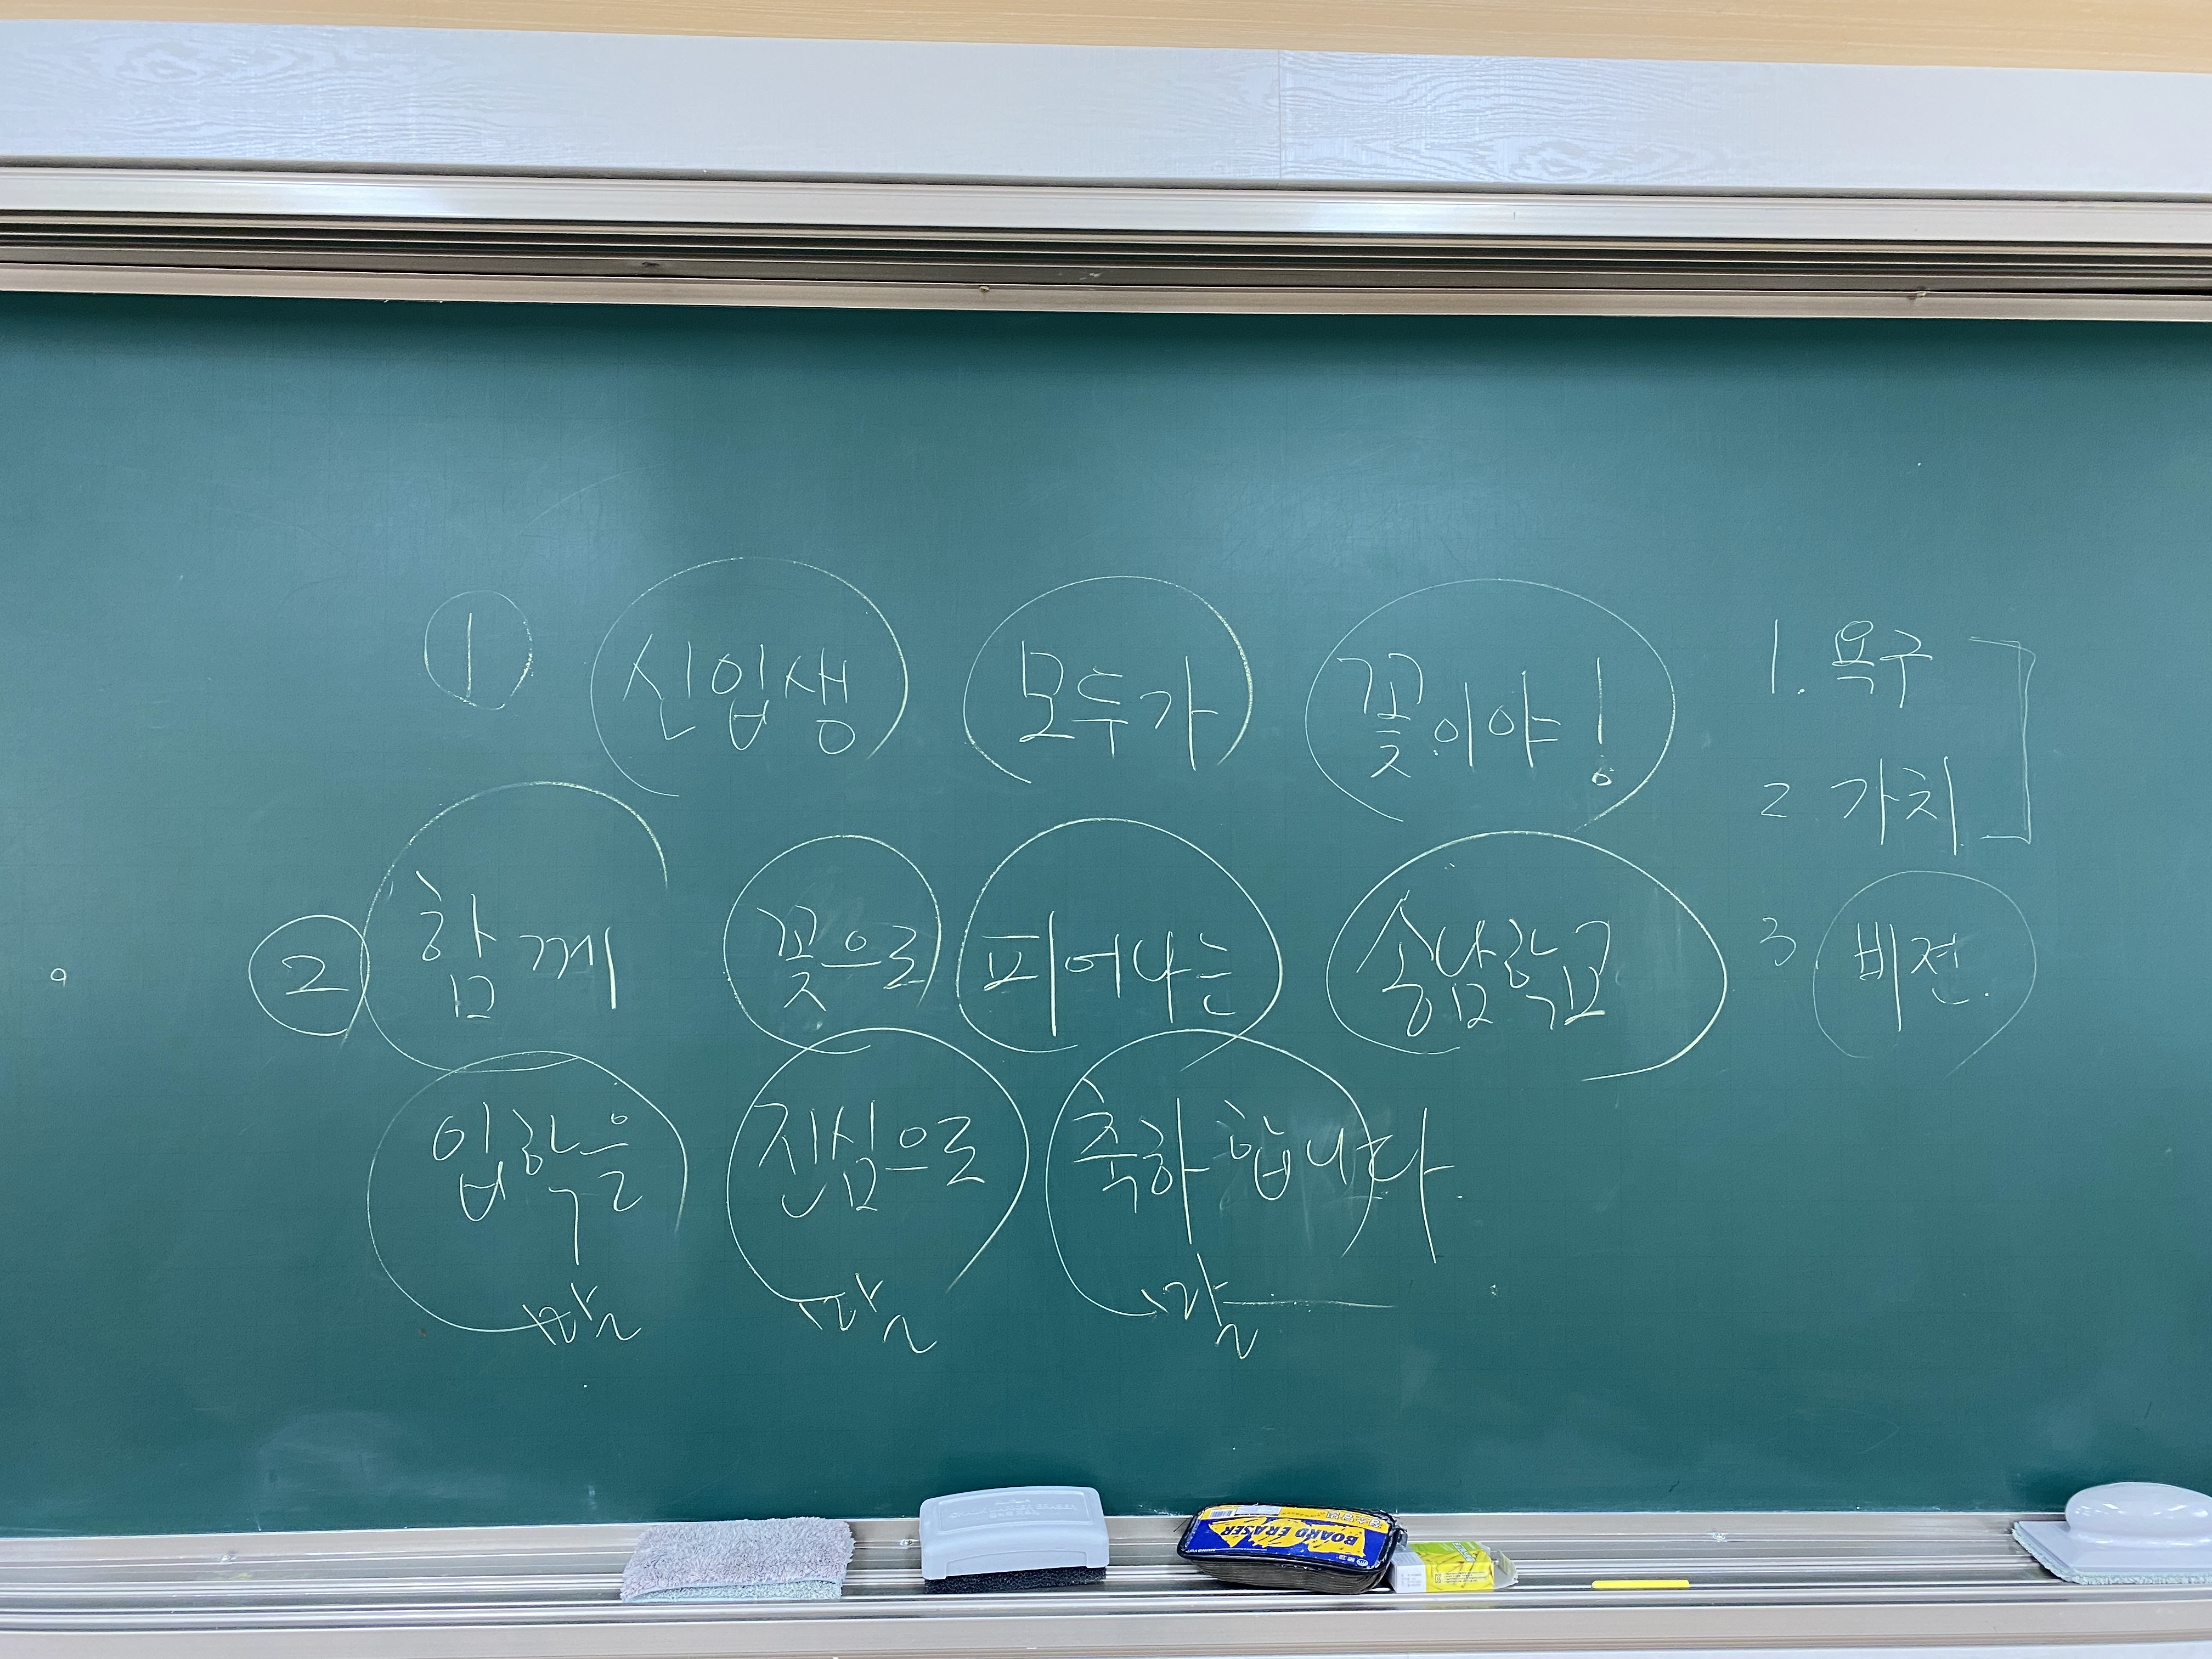 ① 신입생 모두가 꽃이야!
② 함께 꽃으로 피어나는 송남학교
입학을 진심으로 축하합니다.
1. 욕구
2 가치
3 비전.
BOARD ERASER